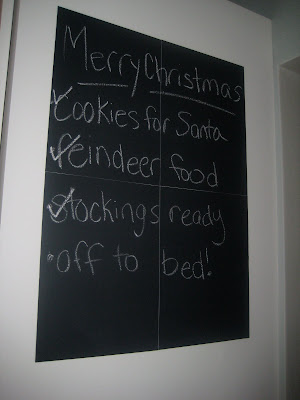 Merry Christmas
✓Cookies for Santa
✓Reindeer food
✓Stockings ready
•off to bed!